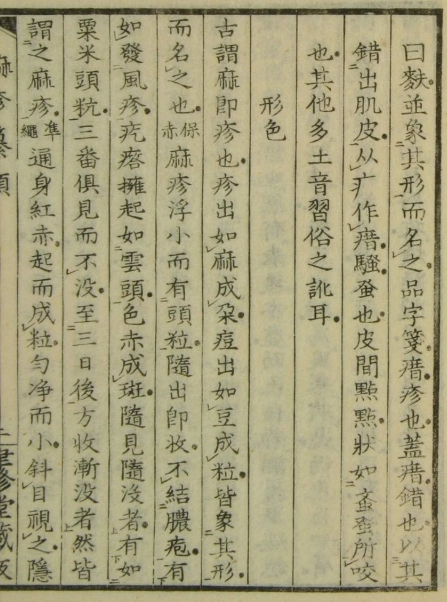 曰麩並象其形而名之品字箋瘄疹也蓋瘄錯也以其
錯出肌皮从疒作瘄騷蚤也皮間點點狀如蚉蚤所咬
也其他多土音習俗之訛耳
形色
古謂麻即疹也疹出如麻成朶痘出如豆成粒皆象其形
而名之也保赤麻疹浮小而有頭粒隨出卽收不結膿疱有
如發風疹疙瘩擁起如雲頭色赤成斑隨見隨沒者有如
粟米頭粬三番俱見而不沒至三日後方收漸没者然皆
謂之麻疹準繩通身紅赤起而成粒勻淨而小斜目視之隱
麻疹纂類
聿修堂藏板